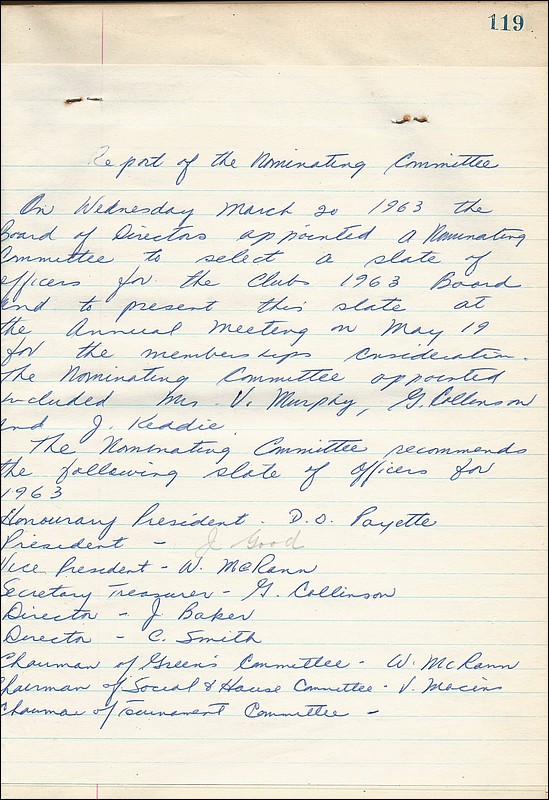 119
Report of the Nominating Committee
On Wednesday March 20 1963 the
Board of Directors appointed a Nominating
Committee to select a slate of
officers for the Clubs 1963 Board
and to present this slate at
the Annual Meeting on May 19
for the memberships consideration.
The Nominating Committee appointed
included Mrs. V. Murphy, G. Collinson
and J. Keddie
The Nominating Committee recommends
the following slate of officers for
1963
Honourary President - D.O. Payette
President - J Good
Vice President - W. McRann
Secretary Treasurer - G. Collinson
Director - J Baker
Director - C. Smith
Chairman of Greens Committee - W. McRann
Chairman of Social & House Committee - V.
Chairman of Tournament Committee -